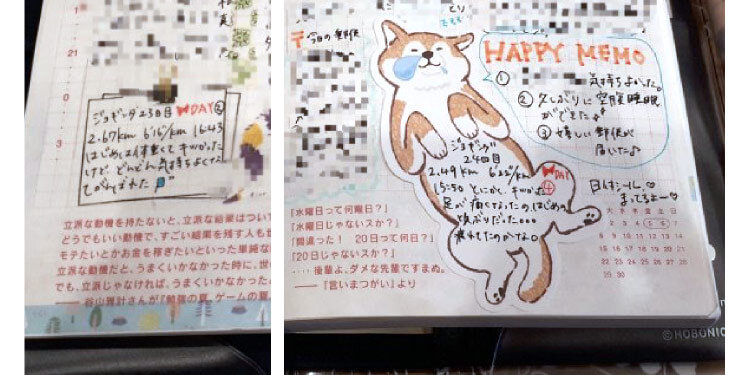 1
21
0
3
ジョギング23回目 DAY②
2.67km 6'15"/km 16:43
はじめは体重くてキツかった
けど どんどん気持ちよくなっ
てがんばれた
立派な動機を持たないと、立派な結果はつい
どうでもいい動機で、すごい結果を残す人も世
モテたいとかお金を稼ぎたいといった単純な
立派な動機だと、うまくいかなかった時に、世
でも、立派じゃなければ、うまくいかなかった
—— 谷山雅計さんが『勉強の夏、ゲームの夏。
〒 今日の郵便
とり
HAPPY MEMO
① 気持ちよかった。
② 久しぶりに 空腹睡眠
ができた♪
③ 嬉しい郵便が
届いた♪
ジョギング
24回目
2.49km 6'22"/km DAY④
15:50 とにかく、キツかった
足が痛くなったのはじめの
頃ぶりだった...
疲れてたのかな。
まってるよー♡
「水曜日って何曜日?」
「水曜日じゃないスか?」
「間違った! 20日って何日?」
「20日じゃないスか?」
‥‥後輩よ、ダメな先輩ですまぬ。
——『言いまつがい』より
日 月 火 水 木 金 土
1 2 3 4 5 6 7
8 9 10 11 12 13 14
15 16 17 18 19 20 21
22 23 24 25 26 27 28
29 30
©HOBONIC